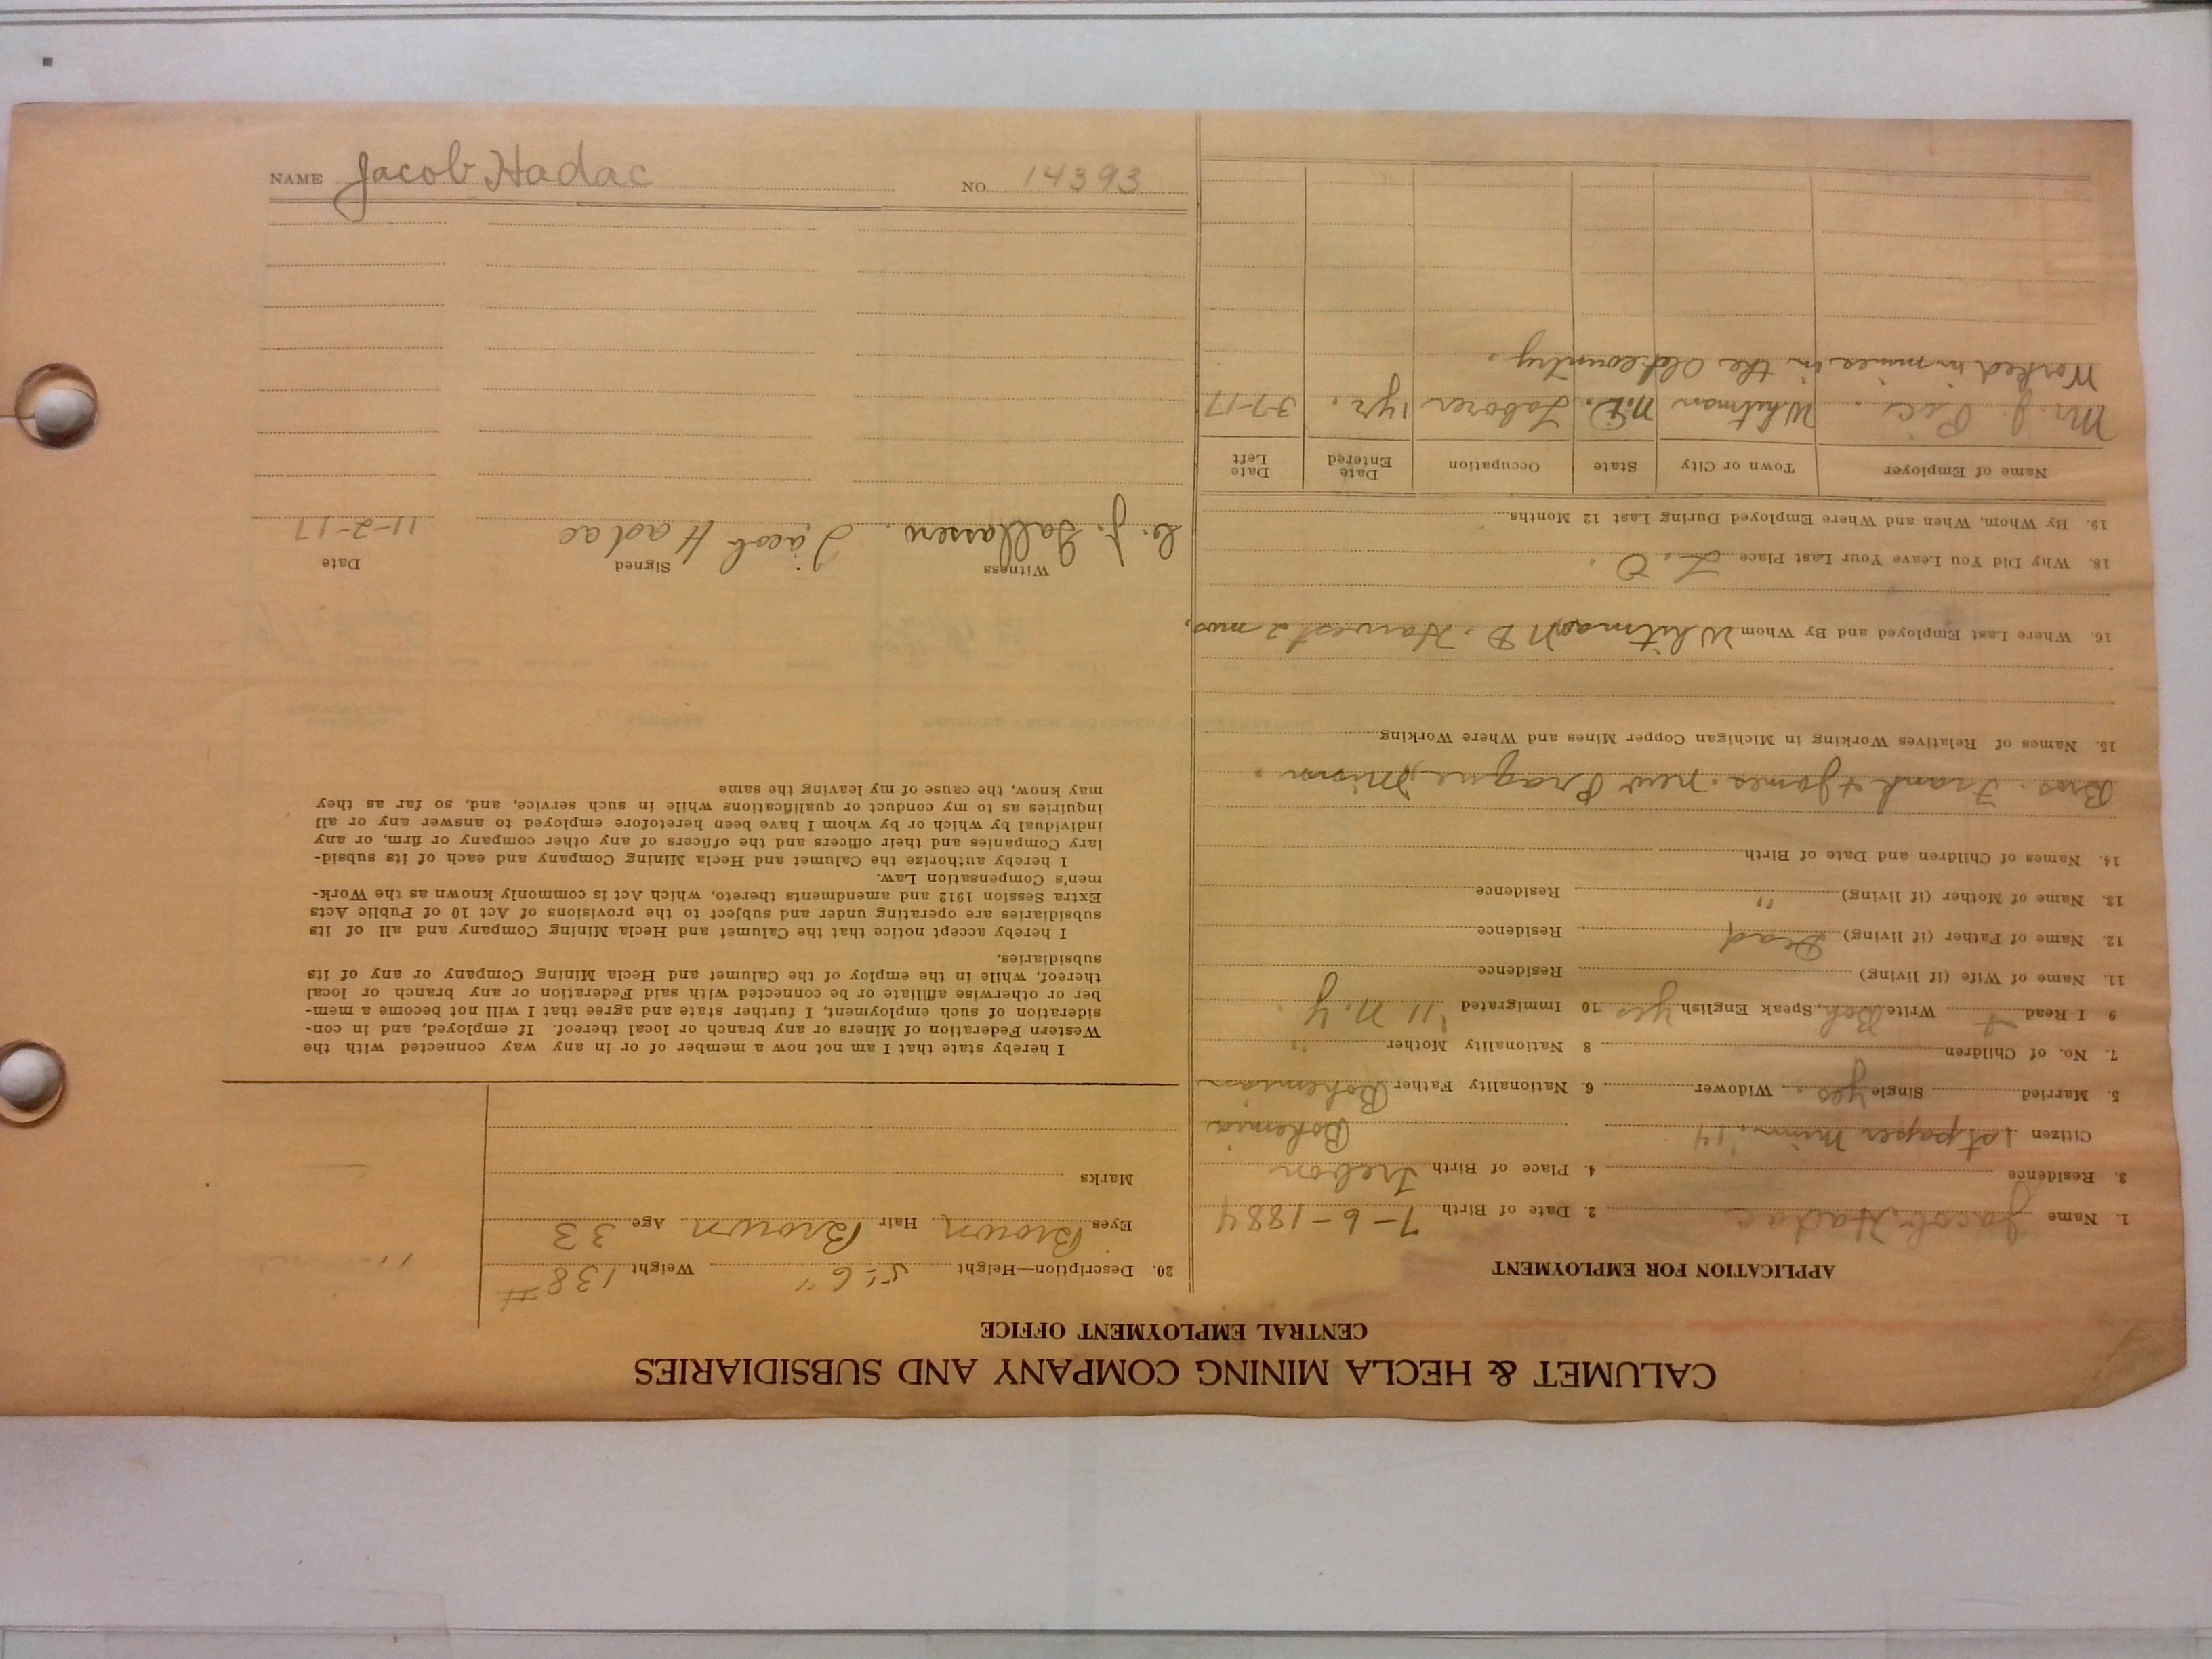 CALUMET & HECLA MINING COMPANY AND SUBSIDIARIES
CENTRAL EMPLOYMENT OFFICE
APPLICATION FOR EMPLOYMENT
1. Name Jacob Hadac 2. Date of Birth 7-6-1884
3. Residence 4. Place of Birth Trebon
Citizen 1st paper Minn. '14 Bohemia
5. Married Single yes. Widower 6. Nationality Father Bohemian
7. No. of Children 8 Nationality Mother "
9 I Read + Write Boh., Speak English yes 10 Immigrated '11 N.Y.
11. Name of Wife (if living) Residence
12. Name of Father (if living) Dead Residence
13. Name of Mother (if living) " Residence
14. Names of Children and Date of Birth
Bros. Frank & James. New Prague, Minn.
15. Names of Relatives Working in Michigan Copper Mines and Where Working
16. Where Last Employed and By Whom Whitman N D. Harvest 2 mos,
18. Why Did You Leave Your Last Place L. O.
19. By Whom, When and Where Employed During Last 12 Months
Name of Employer Town or City State Occupation Date Entered Date Left
Mr. J. Whitman N.D. Laborer 1 yr. 3-7-17
Worked in mines in the Old country.
20. Description—Height 5'-6" Weight 138 #
Eyes Brown Hair Brown Age 33
Marks
I hereby state that I am not now a member of or in any way connected with the
Western Federation of Miners or any branch or local thereof. If employed, and in con-
sideration of such employment, I further state and agree that I will not become a mem-
ber or otherwise affiliate or be connected with said Federation or any branch or local
thereof, while in the employ of the Calumet and Hecla Mining Company or any of its
subsidiaries.
I hereby accept notice that the Calumet and Hecla Mining Company and all of its
subsidiaries are operating under and subject to the provisions of Act 10 of Public Acts
Extra Session 1912 and amendments thereto, which Act is commonly known as the Work-
men's Compensation Law.
I hereby authorize the Calumet and Hecla Mining Company and each of its subsid-
iary Companies and their officers and the officers of any other company or firm, or any
individual by which or by whom I have been heretofore employed to answer any or all
inquiries as to my conduct or qualifications while in such service, and, so far as they
may know, the cause of my leaving the same
Witness Signed Date
Jacob Hadac 11-2-17
NAME Jacob Hadac NO 14393